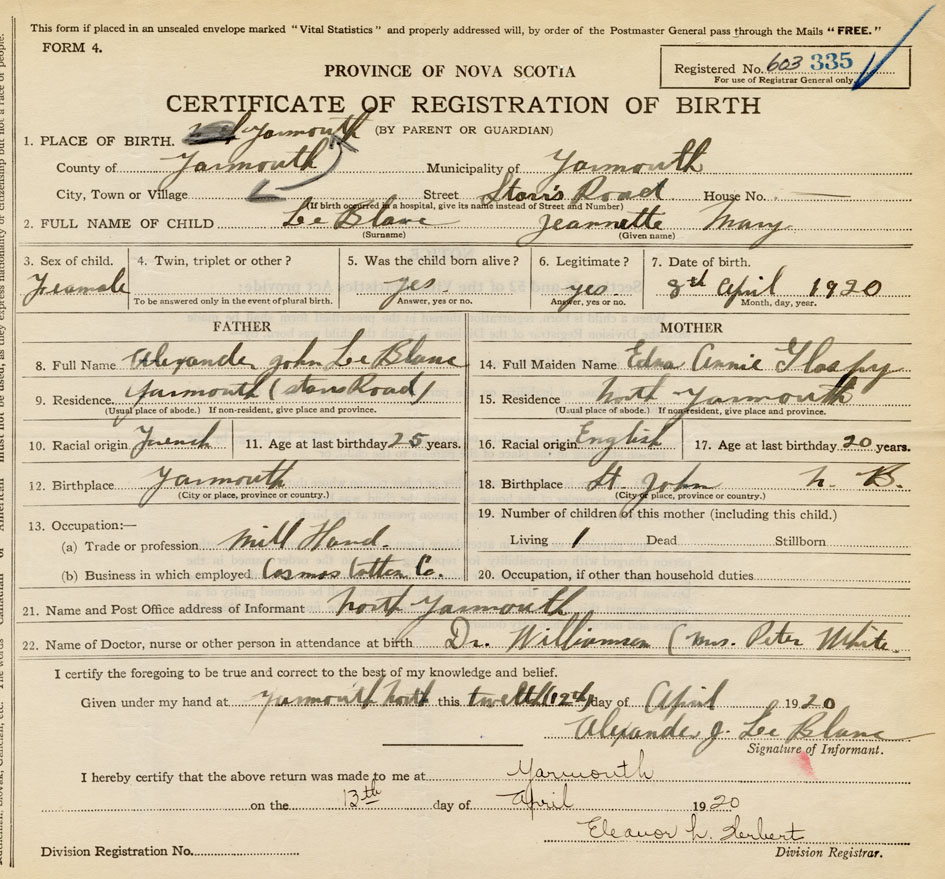 This form if placed in an unsealed envelope marked "Vital Statistics" and properly addressed will, by order of the Postmaster General pass through the Mails "FREE."
FORM 4.
Registered No. 603 335
For use of Registrar General only
PROVINCE OF NOVA SCOTIA
CERTIFICATE OF REGISTRATION OF BIRTH
(BY PARENT OR GUARDIAN)
1. PLACE OF BIRTH. Yarmouth
County of Yarmouth Municipality of Yarmouth
City, Town or Village Street Starr's Road House No.
(If birth occurred in a hospital, give its name instead of Street and Number)
2. FULL NAME OF CHILD Le Blanc Jeannette Mary
(Surname) (Given name)
3. Sex of child. 4. Twin, triplet or other? 5. Was the child born alive? 6. Legitimate? 7. Date of birth.
Feamale yes yes. 8th April 1920
To be answered only in the event of plural birth. Answer, yes or no. Answer, yes or no. Month, day, year.
FATHER
8. Full Name Alexander John Le Blanc
9. Residence Yarmouth (Starrs Road)
(Usual place of abode.) If non-resident, give place and province.
10. Racial origin French 11. Age at last birthday 25 years.
12. Birthplace Yarmouth
(City or place, province or country.)
13. Occupation:—
(a) Trade or profession Mill Hand.
(b) Business in which employed Cosmos Cotton Co.
MOTHER
14. Full Maiden Name Edna Annie
15. Residence North Yarmouth
(Usual place of abode.) If non-resident, give place and province.
16. Racial origin English 17. Age at last birthday 20 years.
18. Birthplace St. John N. B.
(City or place, province or country.)
19. Number of children of this mother (including this child.)
Living 1 Dead Stillborn
20. Occupation, if other than household duties
21. Name and Post Office address of Informant North Yarmouth
22. Name of Doctor, nurse or other person in attendance at birth Dr. Williamson (Mrs. Peter White.
I certify the foregoing to be true and correct to the best of my knowledge and belief.
Given under my hand at Yarmouth North this twelth (12th) day of April 1920
Alexander J. Le Blanc
Signature of Informant.
I hereby certify that the above return was made to me at Yarmouth
on the 13th day of April 1920
Eleanor L. Herbert
Division Registration No. Division Registrar.